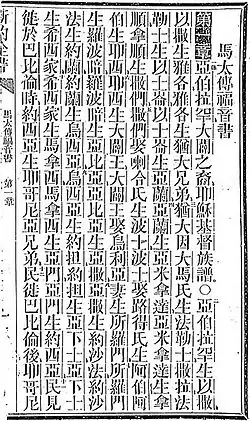 馬太傳福音書
第一章亞伯拉罕大闢之裔耶穌基督族譜○亞伯拉罕生以撒
以撒生雅各雅各生猶大兄弟猶大因大馬氏生法勒士撒拉法
勒士生以士崙以士崙生亞蘭亞蘭生亞米拿達亞米拿達生拿
順拿順生撒們撒們娶喇合氏生波士波士娶路得氏生阿伯阿
伯生耶西耶西生大闢王大闢王娶烏利亞妻生所羅門所羅門
生羅波暗羅波暗生亞比亞亞比亞生亞撒亞撒生約沙法約沙
法生約蘭約蘭生烏西亞烏西亞生約担約担生亞下士亞下士
生希西家希西家生馬拿西馬拿西生亞門亞門生約西亞民見
徙於巴比倫時約西亞生耶哥尼亞兄弟民徙巴比倫後耶哥尼
新約全書 馬太傳福音書 第一章